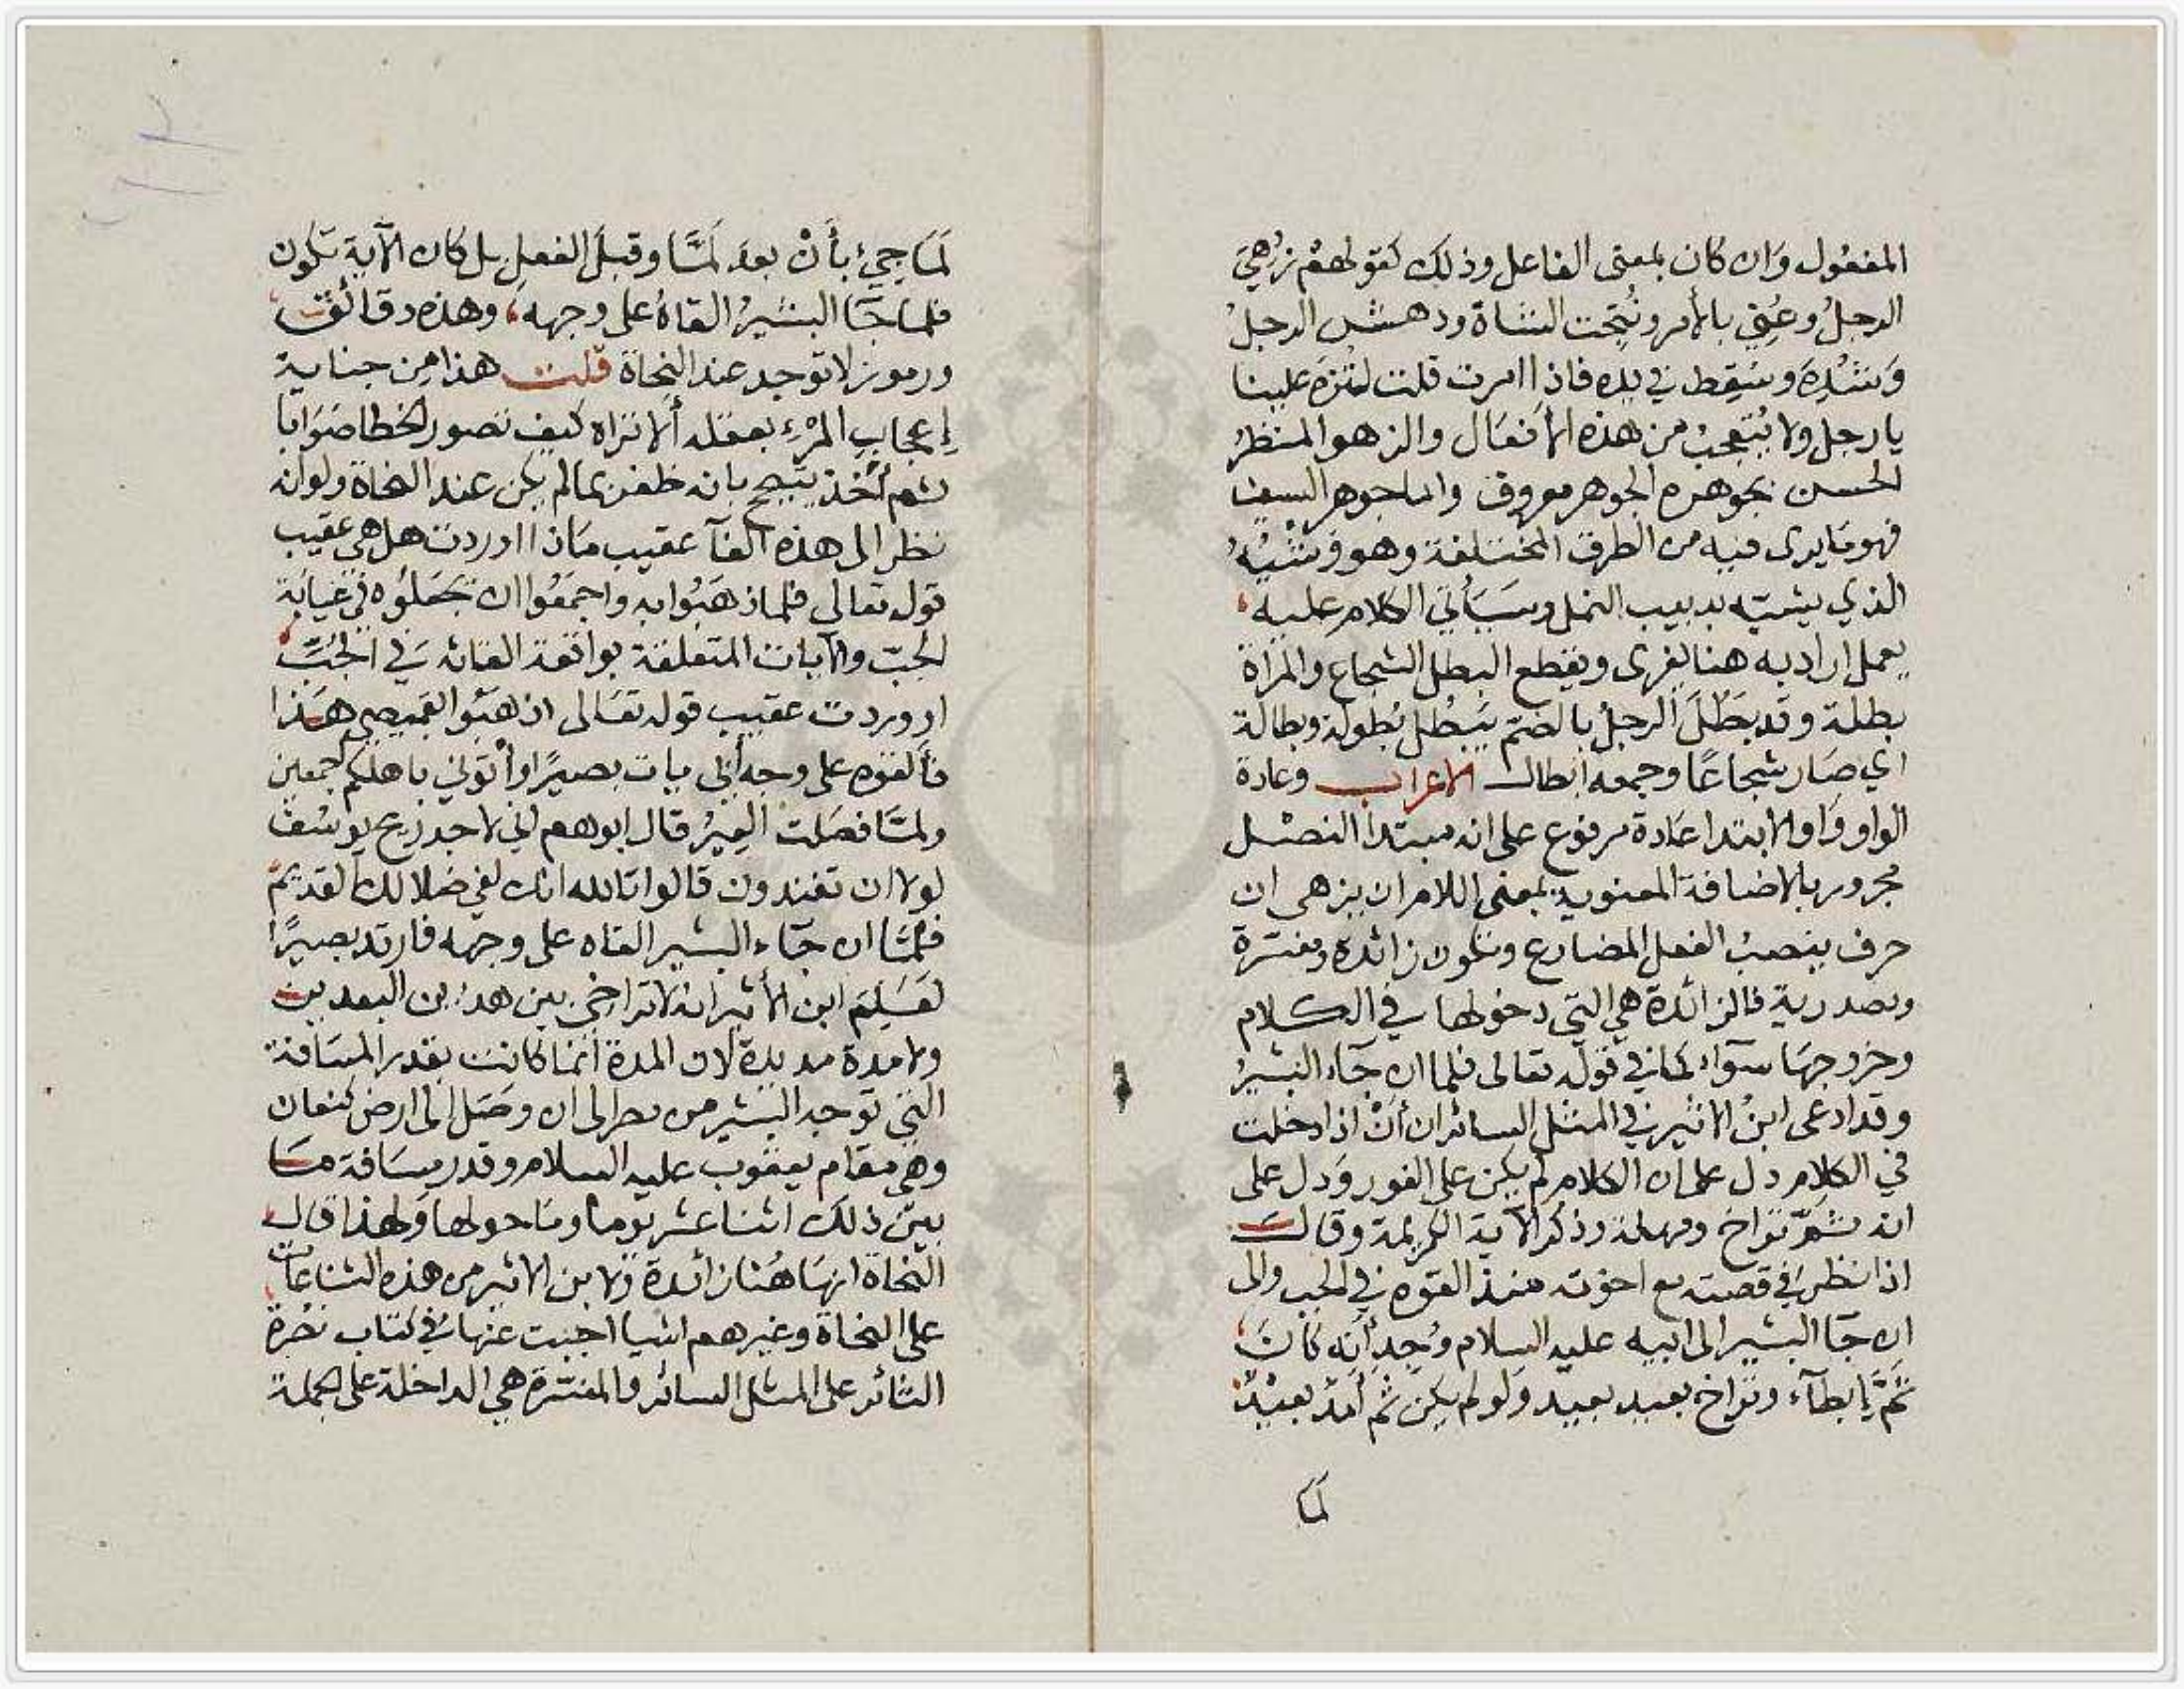 المفعول وان كان بمعنى الفاعل وذلك كقولهم زُهِيَ
الرجلُ وعُنِيَ بالأمر ونُتِجت الشاة ودهش الرجلُ
وَشُدِهَ وسُقِط في يده فاذا امرت قلت لتزه علينا
يا رجل ولا يُتعجبُ من هذه الأفعَال والزهو المنظرُ
الحسن بجوهره الجوهر معروف واما جوهر السيف
فهو مَا يرى فيه من الطرق المختلفة وهو وَشْيُهُ
الذي يشبّه بدبيب النمل وسَيَأتي الكلام عليه
يعمل اراد به هنا يفرى ويقطع البطل الشجاع والمَرأة
بطلة وقد بَطُلَ الرجلُ بالضم يَبْطُل بُطولة وبطالة
اي صَار شجاعًا وجمعه ابطال الاعراب وعادة
الواو وَاو الابتدا عَادة مرفوع على انه مبتدأ النصل
مجرور بالاضافة المعنوية بمعنى اللام ان يزهى ان
حرف ينصبُ الفعل المضارع وتكون زائدة ومفسّرة
ومصدرية فالزائدة هي التي دخولها في الكلام
وخروجهَا سَوَاء كما في قوله تعالى فلما ان جَاء البشيرُ
وقد ادعى ابنُ الاثير في المثل السائر ان أنْ اذا دخلت
في الكلام دل على ان الكلام لم يكن على الفور وَدل على
انه ثَمّ تراخ ومهلة وذكر الآية الكريمة وقال
اذا نظر في قصته مع اخوته منذ القوه في الجب والى
ان جَا البشير الى ابيه عليه السلام وُجِد أنه كانَ
ثَمَّ إبطآء وتراخ بعيد بعيد ولو لم يكن ثم أمدٌ بعيدٌ
لمَا
لمَا جيءَ بأنْ بعد لمَّا وقبلَ الفعلِ بل كان الآية تكون
فلما جَا البشيرُ القاهُ على وجهه، وهذه دقائق
ورموز لا توجد عند النحَاة قلت هذا مِن جناية
إعجابِ المرْءِ بعقله ألا تراه كيف تصور الخطا صَوَابًا
ثم أخذ يتبجح بانه ظفر بمالم يكن عند النحاة ولو انه
نظر الى هذه الفآ عقيب مَاذا اوردت هل هي عقيب
قوله تعالى فلما ذهَبُوا به واجمَعُوا ان يجعَلوُه في غيابَة
الجبّ والآيات المتعلقة بواقعة القائه في الجُبّ
او وردت عقيب قوله تعَالى اذهبُوا بقميصي هَذا
فألقوه على وجه أبي يات بصيرًا وأْتوني باهلكم اجمعين
ولمَّا فصَلت العِيرُ قال ابوهم اني لاجد ريح يوسُفَ
لولا ان تفندون قالوا تالله انك لفي ضلالك القديم
فلمَّا ان جَاء البشير القاه على وجهه فارتد بصيرًا
لعَلِمَ ابن الأثير انه لا تراخي بين هذين البعدين
ولا مدة مديدة لان المدة انما كانت بقدر المسَافة
التي توجه البشير من مصر الى ان وصَل الى ارض كنعان
وهي مقام يعقوب عليه السلام وقدر مسَافة مَا
بين ذلك اثنا عشر يومًا ومَا حولها وَلهذا قال
النحَاة انهَا هُنا زائدة وَلابن الاثير من هذه الشناعات
على النحاة وغيرهم اشيا اجبت عنها في كتاب نصْرة
الثائر على المثل السائر والمفسّرة هي الداخلة على جملة